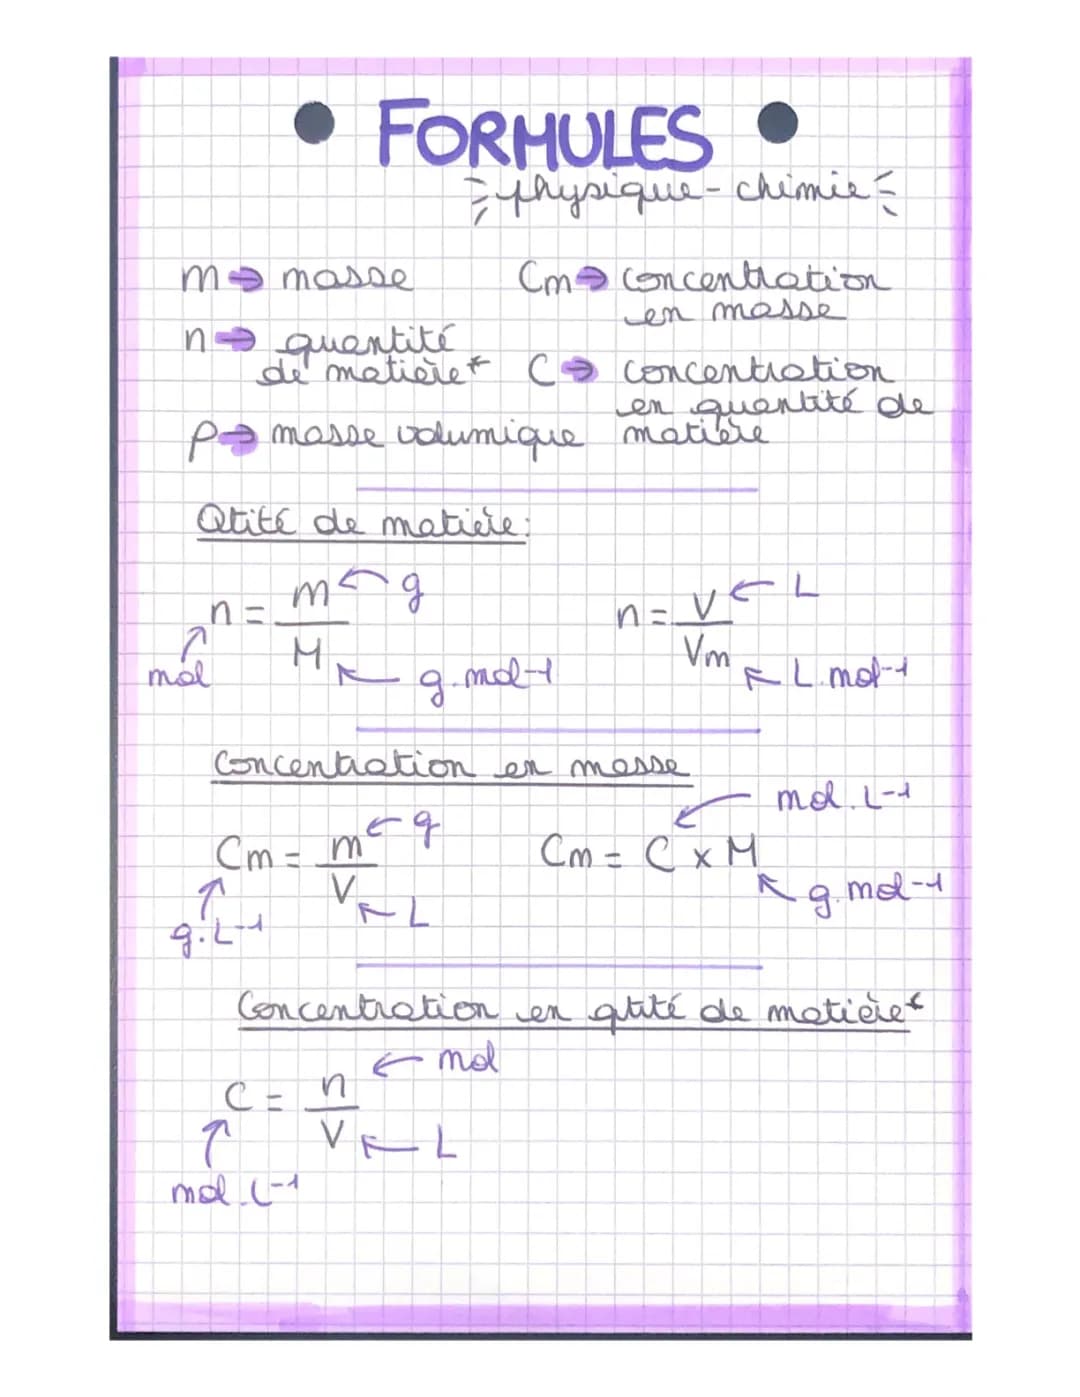 FORMULES
physique-chimie
m → masse
Cm → concentration
en masse
n → quantité
de matière*
C → concentration
en quantité de
matière
ρ → masse volumique
Qtité de matière:
n = m/M
g
mol
g.mol-1
n = V/Vm
L
L.mol-1
Concentration en masse
Cm = m/V
g
g.L-1
L
Cm = C x M
mol.L-1
g.mol-1
Concentration en qtité de matière*
C = n/V
mol
L
mol.L-1